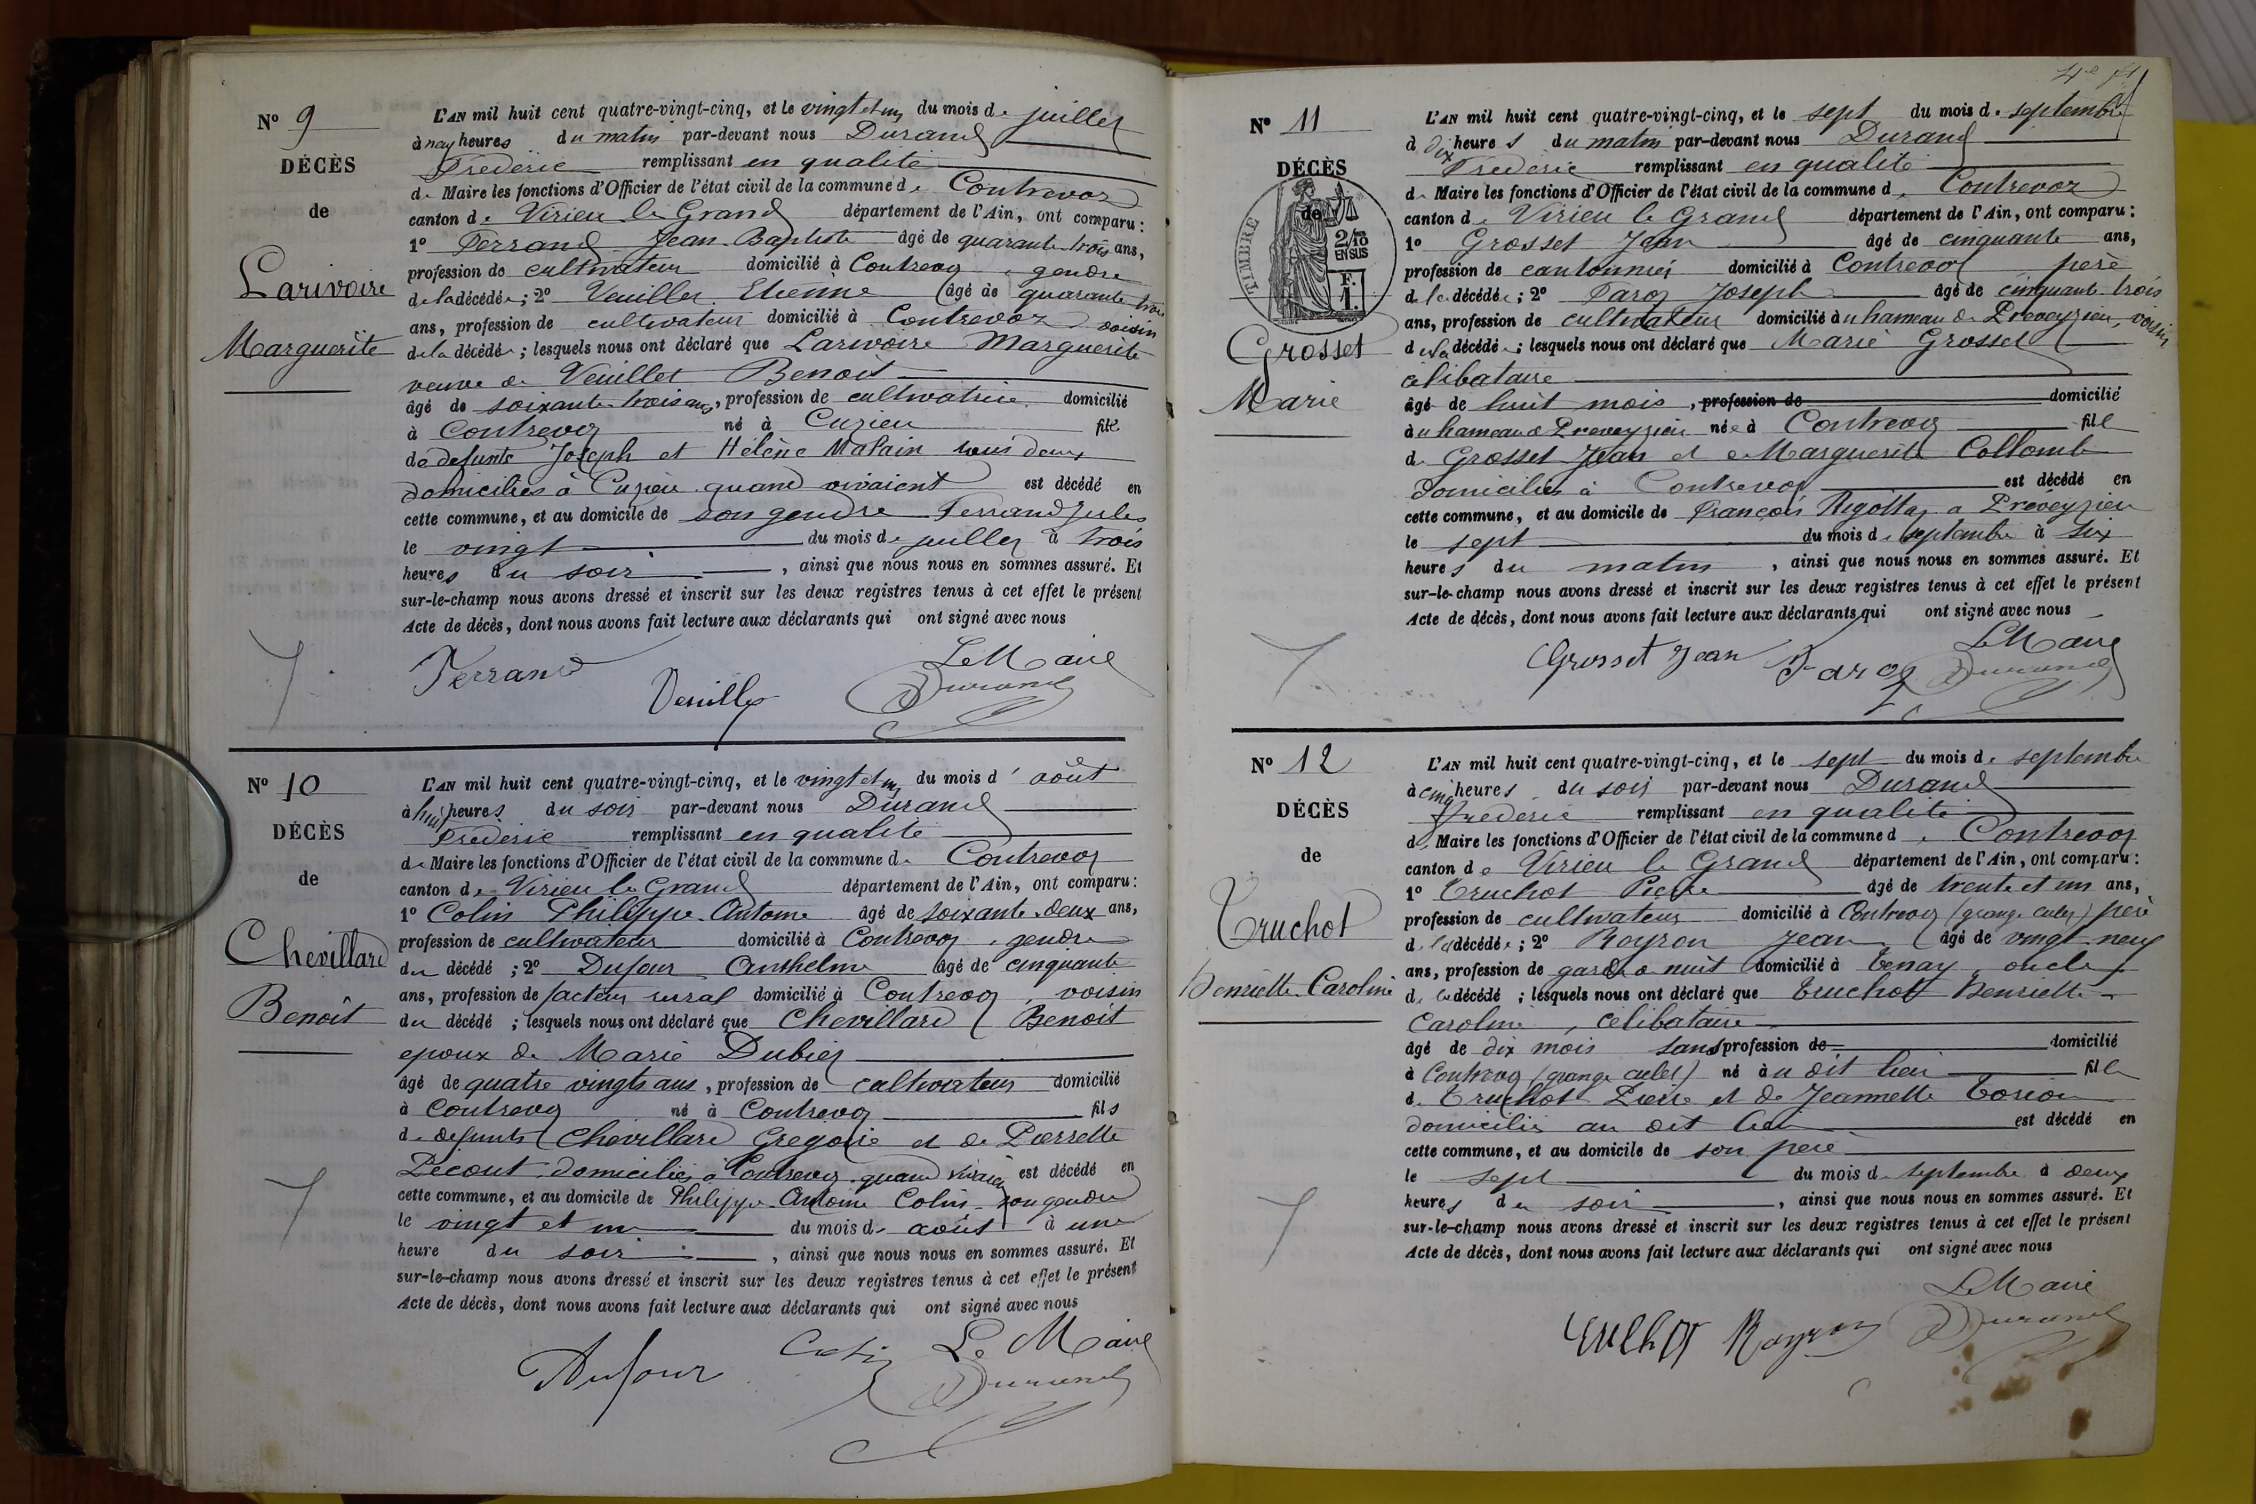 N° 9
DÉCÈS
de
Larivoire
Marguerite
L'AN mil huit cent quatre-vingt-cinq, et le vingt et un du mois de juillet
à heures du matin par-devant nous Durand
Frederic remplissant en qualité
de Maire les fonctions d'Officier de l'état civil de la commune de Contrevoz
canton de Virieu le Grand département de l'Ain, ont comparu :
1° Ferrand Jean Baptiste âgé de quarante trois ans,
profession de cultivateur domicilié à Contrevoz, gendre
de la décédée ; 2° Veuillet Etienne âgé de quarante trois
ans, profession de cultivateur domicilié à Contrevoz voisin
de la décédée ; lesquels nous ont déclaré que Larivoire Marguerite
veuve de Veuillet Benoit
âgé de soixante trois ans, profession de cultivatrice domicilié
à Contrevoz né à Cuzieu fille
de defunts Joseph et Hélène Matain tous deux
domiciliés à Cuzieu quand vivaient est décédé en
cette commune, et au domicile de son gendre Ferrand Jules
le vingt du mois de juillet à trois
heures du soir, ainsi que nous nous en sommes assuré. Et
sur-le-champ nous avons dressé et inscrit sur les deux registres tenus à cet effet le présent
Acte de décès, dont nous avons fait lecture aux déclarants qui ont signé avec nous
Le Maire
Ferrand Veuillet Durand
N° 10
DÉCÈS
de
Chevillard
Benoît
L'AN mil huit cent quatre-vingt-cinq, et le vingt et un du mois d'août
à huit heures du soir par-devant nous Durand
Frédéric remplissant en qualité
de Maire les fonctions d'Officier de l'état civil de la commune de Contrevoz
canton de Virieu le Grand département de l'Ain, ont comparu :
1° Colin Philippe Antoine âgé de soixante deux ans,
profession de cultivateur domicilié à Contrevoz, gendre
du décédé ; 2° Dufour Anthelme âgé de cinquante
ans, profession de facteur rural domicilié à Contrevoz, voisin
du décédé ; lesquels nous ont déclaré que Chevillard Benoit
epoux de Marie Dubiez
âgé de quatre vingts ans, profession de cultivateur domicilié
à Contrevoz né à Contrevoz fils
de defunts Chevillard Gregoire et de Pierrette
Décout domiciliés à Contrevoz quand vivaient est décédé en
cette commune, et au domicile de Philippe Antoine Colin son gendre
le vingt et un du mois de août à une
heure du soir, ainsi que nous nous en sommes assuré. Et
sur-le-champ nous avons dressé et inscrit sur les deux registres tenus à cet effet le présent
Acte de décès, dont nous avons fait lecture aux déclarants qui ont signé avec nous
Dufour Colin Le Maire
Durand
N° 11
DÉCÈS
de
TIMBRE
2/10
EN SUS
F.
1.
Grosset
Marie
L'AN mil huit cent quatre-vingt-cinq, et le sept du mois de septembre
à dix heures du matin par-devant nous Durand
Frederic remplissant en qualité
de Maire les fonctions d'Officier de l'état civil de la commune de Contrevoz
canton de Virieu le Grand département de l'Ain, ont comparu :
1° Grosset Jean âgé de cinquante ans,
profession de cantonnier domicilié à Contrevoz père
de la décédée ; 2° Paroz Joseph âgé de cinquante trois
ans, profession de cultivateur domicilié au hameau de Preveyzieu, voisin
de la décédée ; lesquels nous ont déclaré que Marie Grosset
célibataire
âgé de huit mois, profession de domicilié
au hameau de Preveyzieu née à Contrevoz fille
de Grosset Jean et de Marguerite Collomb
domiciliés à Contrevoz est décédé en
cette commune, et au domicile de François Rigottaz a Préveyzieu
le sept du mois de septembre à six
heures du matin, ainsi que nous nous en sommes assuré. Et
sur-le-champ nous avons dressé et inscrit sur les deux registres tenus à cet effet le présent
Acte de décès, dont nous avons fait lecture aux déclarants qui ont signé avec nous
Le Maire
Grosset Jean Paroz Durand
N° 12
DÉCÈS
de
Truchot
Henriette Caroline
L'AN mil huit cent quatre-vingt-cinq, et le sept du mois de septembre
à cinq heures du soir par-devant nous Durand
Frederic remplissant en qualité
de Maire les fonctions d'Officier de l'état civil de la commune de Contrevoz
canton de Virieu le Grand département de l'Ain, ont comparu :
1° Truchot Pierre âgé de trente et un ans,
profession de cultivateur domicilié à Contrevoz (grange) père
de la décédée ; 2° Royron Jean âgé de vingt neuf
ans, profession de garde de nuit domicilié à Tenay, oncle
de la décédé ; lesquels nous ont déclaré que Truchot Henriette
Caroline, célibataire
âgé de dix mois sans profession de domicilié
à Contrevoz (grange) né au dit lieu fille
de Truchot Pierre et de Jeannette
domiciliés au dit lieu est décédé en
cette commune, et au domicile de son père
le sept du mois de septembre à deux
heures du soir, ainsi que nous nous en sommes assuré. Et
sur-le-champ nous avons dressé et inscrit sur les deux registres tenus à cet effet le présent
Acte de décès, dont nous avons fait lecture aux déclarants qui ont signé avec nous
Le Maire
Truchot Royron Durand